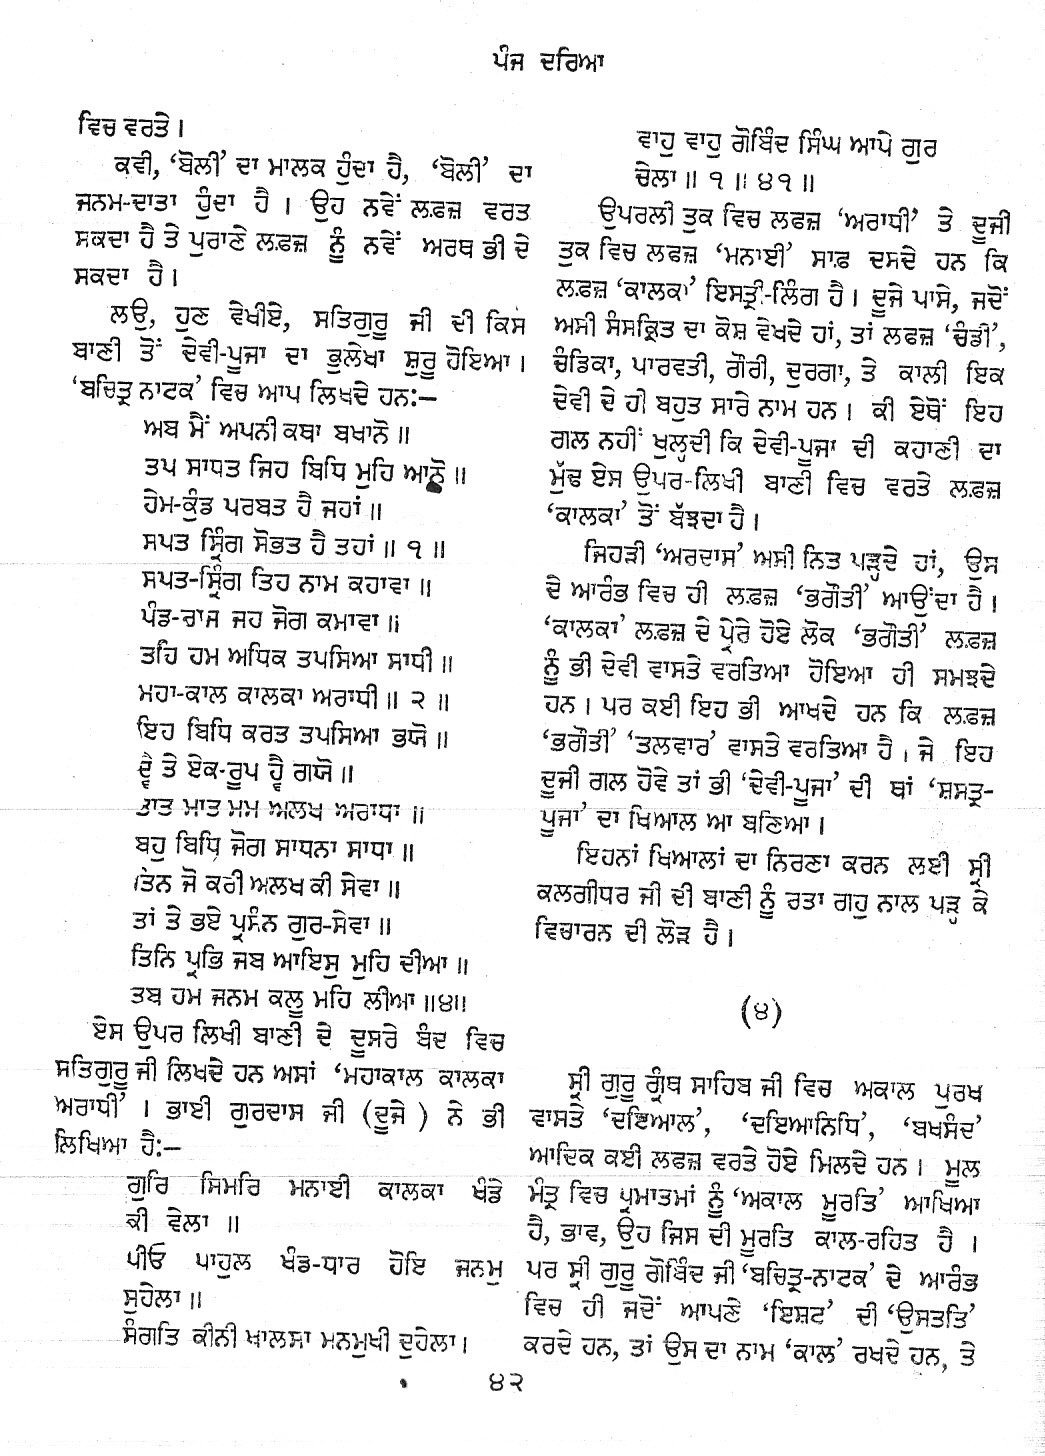 ਪੰਜ ਦਰਿਆ
ਵਿਚ ਵਰਤੇ।
ਕਵੀ, ‘ਬੋਲੀ’ ਦਾ ਮਾਲਕ ਹੁੰਦਾ ਹੈ, ‘ਬੋਲੀ’ ਦਾ
ਜਨਮ-ਦਾਤਾ ਹੁੰਦਾ ਹੈ। ਉਹ ਨਵੇਂ ਲਫ਼ਜ਼ ਵਰਤ
ਸਕਦਾ ਹੈ ਤੇ ਪੁਰਾਣੇ ਲਫ਼ਜ਼ ਨੂੰ ਨਵੇਂ ਅਰਥ ਭੀ ਦੇ
ਸਕਦਾ ਹੈ।
ਲਉ, ਹੁਣ ਵੇਖੀਏ, ਸਤਿਗੁਰੂ ਜੀ ਦੀ ਕਿਸ
ਬਾਣੀ ਤੋਂ ਦੇਵੀ-ਪੂਜਾ ਦਾ ਭੁਲੇਖਾ ਸ਼ੁਰੂ ਹੋਇਆ।
‘ਬਚਿਤ੍ਰ ਨਾਟਕ’ ਵਿਚ ਆਪ ਲਿਖਦੇ ਹਨ:—
ਅਬ ਮੈਂ ਅਪਨੀ ਕਥਾ ਬਖਾਨੋ॥
ਤਪ ਸਾਧਤ ਜਿਹ ਬਿਧਿ ਮੁਹਿ ਆਨੋ॥
ਹੇਮ-ਕੁੰਡ ਪਰਬਤ ਹੈ ਜਹਾਂ॥
ਸਪਤ ਸ੍ਰਿੰਗ ਸੋਭਤ ਹੈ ਤਹਾਂ॥ ੧॥
ਸਪਤ-ਸ੍ਰਿੰਗ ਤਿਹ ਨਾਮ ਕਹਾਵਾ॥
ਪੰਡ-ਰਾਜ ਜਹ ਜੋਗ ਕਮਾਵਾ॥
ਤਹਿ ਹਮ ਅਧਿਕ ਤਪਸਿਆ ਸਾਧੀ॥
ਮਹਾ-ਕਾਲ ਕਾਲਕਾ ਅਰਾਧੀ॥ ੨॥
ਇਹ ਬਿਧਿ ਕਰਤ ਤਪਸਿਆ ਭਯੋ॥
ਦ੍ਵੈ ਤੇ ਏਕ-ਰੂਪ ਹ੍ਵੈ ਗਯੋ॥
ਤਾਤ ਮਾਤ ਮਮ ਅਲਖ ਅਰਾਧਾ॥
ਬਹੁ ਬਿਧਿ ਜੋਗ ਸਾਧਨਾ ਸਾਧਾ॥
ਤਿਨ ਜੋ ਕਰੀ ਅਲਖ ਕੀ ਸੇਵਾ॥
ਤਾਂ ਤੇ ਭਏ ਪ੍ਰਸੰਨ ਗੁਰ-ਸੇਵਾ॥
ਤਿਨਿ ਪ੍ਰਭਿ ਜਬ ਆਇਸੁ ਮੁਹਿ ਦੀਆ॥
ਤਬ ਹਮ ਜਨਮ ਕਲੂ ਮਹਿ ਲੀਆ॥੪॥
ਏਸ ਉਪਰ ਲਿਖੀ ਬਾਣੀ ਦੇ ਦੂਸਰੇ ਬੰਦ ਵਿਚ
ਸਤਿਗੁਰੂ ਜੀ ਲਿਖਦੇ ਹਨ ਅਸਾਂ ‘ਮਹਾਕਾਲ ਕਾਲਕਾ
ਅਰਾਧੀ’। ਭਾਈ ਗੁਰਦਾਸ ਜੀ (ਦੂਜੇ) ਨੇ ਭੀ
ਲਿਖਿਆ ਹੈ:—
ਗੁਰਿ ਸਿਮਰਿ ਮਨਾਈ ਕਾਲਕਾ ਖੰਡੇ
ਕੀ ਵੇਲਾ॥
ਪੀਓ ਪਾਹੁਲ ਖੰਡ-ਧਾਰ ਹੋਇ ਜਨਮੁ
ਸੁਹੇਲਾ॥
ਸੰਗਤਿ ਕੀਨੀ ਖਾਲਸਾ ਮਨਮੁਖੀ ਦੁਹੇਲਾ।
ਵਾਹੁ ਵਾਹੁ ਗੋਬਿੰਦ ਸਿੰਘ ਆਪੇ ਗੁਰ
ਚੇਲਾ॥ ੧॥ ੪੧॥
ਉਪਰਲੀ ਤੁਕ ਵਿਚ ਲਫਜ਼ ‘ਅਰਾਧੀ’ ਤੇ ਦੂਜੀ
ਤੁਕ ਵਿਚ ਲਫਜ਼ ‘ਮਨਾਈ’ ਸਾਫ਼ ਦਸਦੇ ਹਨ ਕਿ
ਲਫ਼ਜ਼ ‘ਕਾਲਕਾ’ ਇਸਤ੍ਰੀ-ਲਿੰਗ ਹੈ। ਦੂਜੇ ਪਾਸੇ, ਜਦੋਂ
ਅਸੀ ਸੰਸਕ੍ਰਿਤ ਦਾ ਕੋਸ਼ ਵੇਖਦੇ ਹਾਂ, ਤਾਂ ਲਫਜ਼ ‘ਚੰਡੀ’,
ਚੰਡਿਕਾ, ਪਾਰਵਤੀ, ਗੌਰੀ, ਦੁਰਗਾ, ਤੇ ਕਾਲੀ ਇਕ
ਦੇਵੀ ਦੇ ਹੀ ਬਹੁਤ ਸਾਰੇ ਨਾਮ ਹਨ। ਕੀ ਏਥੋਂ ਇਹ
ਗਲ ਨਹੀਂ ਖੁਲ੍ਹਦੀ ਕਿ ਦੇਵੀ-ਪੂਜਾ ਦੀ ਕਹਾਣੀ ਦਾ
ਮੁੱਢ ਏਸ ਉਪਰ-ਲਿਖੀ ਬਾਣੀ ਵਿਚ ਵਰਤੇ ਲਫ਼ਜ਼
‘ਕਾਲਕਾ’ ਤੋਂ ਬੱਝਦਾ ਹੈ।
ਜਿਹੜੀ ‘ਅਰਦਾਸ’ ਅਸੀ ਨਿਤ ਪੜ੍ਹਦੇ ਹਾਂ, ਉਸ
ਦੇ ਆਰੰਭ ਵਿਚ ਹੀ ਲਫ਼ਜ਼ ‘ਭਗੌਤੀ’ ਆਉਂਦਾ ਹੈ।
‘ਕਾਲਕਾ’ ਲਫ਼ਜ਼ ਦੇ ਪ੍ਰੇਰੇ ਹੋਏ ਲੋਕ ‘ਭਗੌਤੀ’ ਲਫ਼ਜ਼
ਨੂੰ ਭੀ ਦੇਵੀ ਵਾਸਤੇ ਵਰਤਿਆ ਹੋਇਆ ਹੀ ਸਮਝਦੇ
ਹਨ। ਪਰ ਕਈ ਇਹ ਭੀ ਆਖਦੇ ਹਨ ਕਿ ਲਫ਼ਜ਼
‘ਭਗੌਤੀ’ ‘ਤਲਵਾਰ’ ਵਾਸਤੇ ਵਰਤਿਆ ਹੈ। ਜੇ ਇਹ
ਦੂਜੀ ਗਲ ਹੋਵੇ ਤਾਂ ਭੀ ‘ਦੇਵੀ-ਪੂਜਾ’ ਦੀ ਥਾਂ ‘ਸ਼ਸਤ੍ਰ-
ਪੂਜਾ’ ਦਾ ਖਿਆਲ ਆ ਬਣਿਆ।
ਇਹਨਾਂ ਖਿਆਲਾਂ ਦਾ ਨਿਰਣਾ ਕਰਨ ਲਈ ਸ੍ਰੀ
ਕਲਗੀਧਰ ਜੀ ਦੀ ਬਾਣੀ ਨੂੰ ਰਤਾ ਗਹੁ ਨਾਲ ਪੜ੍ਹ ਕੇ
ਵਿਚਾਰਨ ਦੀ ਲੋੜ ਹੈ।
(੪)
ਸ੍ਰੀ ਗੁਰੂ ਗ੍ਰੰਥ ਸਾਹਿਬ ਜੀ ਵਿਚ ਅਕਾਲ ਪੁਰਖ
ਵਾਸਤੇ ‘ਦਇਆਲ’, ‘ਦਇਆਨਿਧਿ’, ‘ਬਖਸੰਦ’
ਆਦਿਕ ਕਈ ਲਫਜ਼ ਵਰਤੇ ਹੋਏ ਮਿਲਦੇ ਹਨ। ਮੂਲ
ਮੰਤ੍ਰ ਵਿਚ ਪ੍ਰਮਾਤਮਾਂ ਨੂੰ ‘ਅਕਾਲ ਮੂਰਤਿ’ ਆਖਿਆ
ਹੈ, ਭਾਵ, ਉਹ ਜਿਸ ਦੀ ਮੂਰਤਿ ਕਾਲ-ਰਹਿਤ ਹੈ।
ਪਰ ਸ੍ਰੀ ਗੁਰੂ ਗੋਬਿੰਦ ਜੀ ‘ਬਚਿਤ੍ਰ-ਨਾਟਕ’ ਦੇ ਆਰੰਭ
ਵਿਚ ਹੀ ਜਦੋਂ ਆਪਣੇ ‘ਇਸ਼ਟ’ ਦੀ ‘ਉਸਤਤਿ’
ਕਰਦੇ ਹਨ, ਤਾਂ ਉਸ ਦਾ ਨਾਮ ‘ਕਾਲ’ ਰਖਦੇ ਹਨ, ਤੇ
੪੨